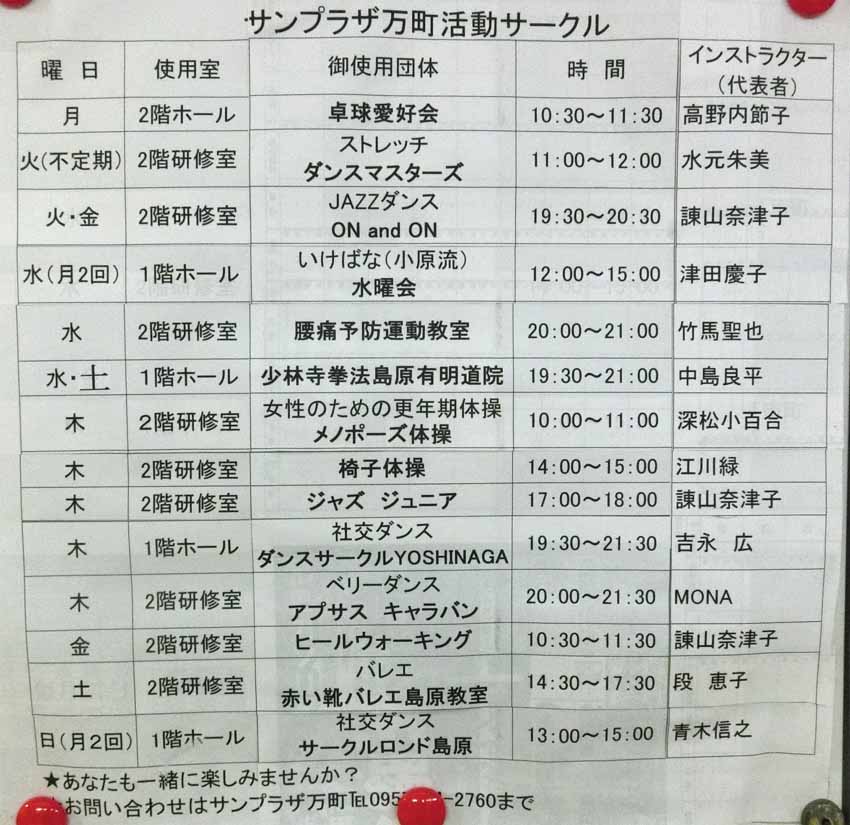 サンプラザ万町活動サークル
曜 日 使用室 御使用団体 時 間 インストラクター
(代表者)
月 2階ホール 卓球愛好会 10:30～11:30 高野内節子
火(不定期) 2階研修室 ストレッチ
ダンスマスターズ 11:00～12:00 水元朱美
火・金 2階研修室 JAZZダンス
ON and ON 19:30～20:30 諫山奈津子
水(月2回) 1階ホール いけばな(小原流)
水曜会 12:00～15:00 津田慶子
水 2階研修室 腰痛予防運動教室 20:00～21:00 竹馬聖也
水・土 1階ホール 少林寺拳法島原有明道院 19:30～21:00 中島良平
木 2階研修室 女性のための更年期体操
メノポーズ体操 10:00～11:00 深松小百合
木 2階研修室 椅子体操 14:00～15:00 江川緑
木 2階研修室 ジャズ ジュニア 17:00～18:00 諫山奈津子
木 1階ホール 社交ダンス
ダンスサークルYOSHINAGA 19:30～21:30 吉永 広
木 2階研修室 ベリーダンス
アプサス キャラバン 20:00～21:30 MONA
金 2階研修室 ヒールウォーキング 10:30～11:30 諫山奈津子
土 2階研修室 バレエ
赤い靴バレエ島原教室 14:30～17:30 段 恵子
日(月2回) 1階ホール 社交ダンス
サークルロンド島原 13:00～15:00 青木信之
★あなたも一緒に楽しみませんか?
お問い合わせはサンプラザ万町℡095 -2760まで